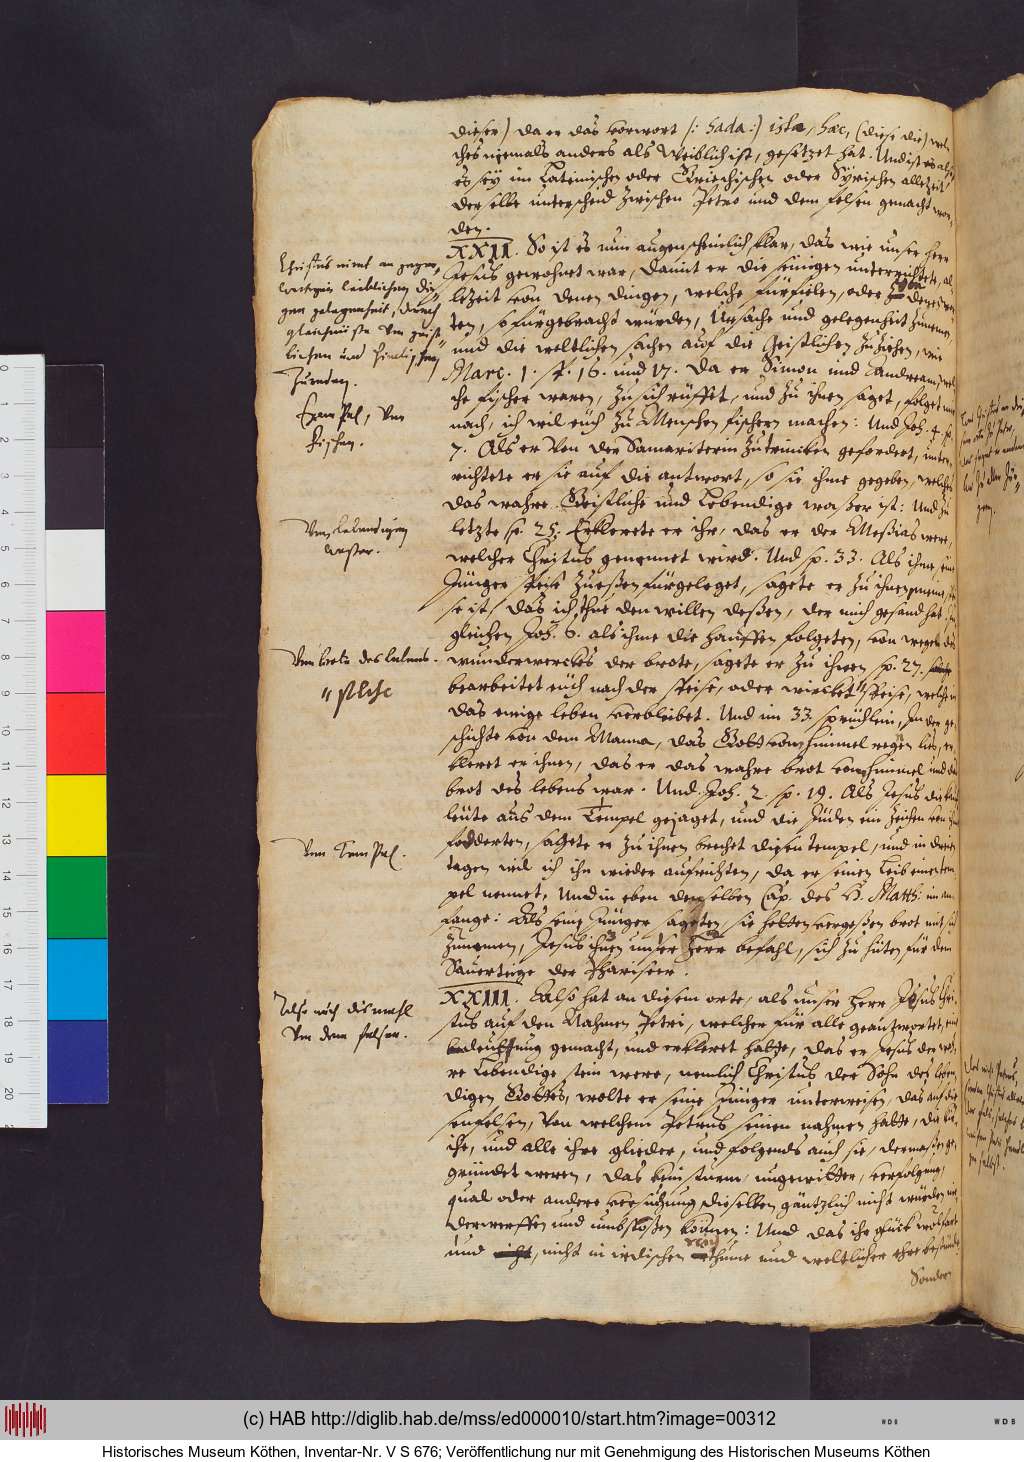 dieser) da er das vorwort /: hada :/ ista, haec, (diese die) wel-
ches niemals anders als Weiblich ist, gesetzet hat. Und ist es also
es sey im Lateinischen oder Griechischen oder Syrischen allezeit
derselbe unterscheid zwischen Petro und dem felsen gemacht wor-
den.
XXII. So ist es nun augenscheinlich klar, das wie unser herr
Jesus gewohnet war, damit er die seinigen unterrichtete, al-
lezeit von denen dingen, welche fürfielen, oder
ten, fürgebracht würden, Ursache und gelegenheit zunemen
und die weltlichen sachen auf die Geistlichen zuziehen, wie
Marc. 1. sp. 16. und 17. Da er Simon und Andream, wel-
che fischer waren, zu sich rüffet, und zu ihnen saget, folget mir
nach, ich wil euch zu Menschen fischern machen: Und Joh. 4. sp.
7. Als er von der Samariterin zutrincken gefordert, unter-
richtete er sie auf die antwort, so sie ihme gegeben, welches
das wahre Geistliche und Lebendige waßer ist: Und zu
letzte sp. 25. Erklerete er ihr, das er der Meßias were,
welcher Christus genennet wird. Und sp. 33. Als ihme seine
Jünger speise zueßen fürgeleget, sagete er zu ihnen, meine
se ist, das ich thue den willen deßen, der mich gesand hat.
gleichen Joh. 6. als ihme die hauffen folgeten, von wegen des
wunderwerckes der brote, sagete er zu ihnen sp. 27.
bearbeitet euch nach der speise, oder wircket speise, welche in
das ewige leben verbleibet. Und im 33. sprüchlein, In der ge-
schichte von dem Manna, das Gott vom himmel regnen lies, er-
kleret er ihnen, das er das wahre brot vom himmel und das
brot des lebens war. Und Joh. 2. sp. 19. Als Jesus die kauf-
leüte aus dem Tempel gejaget, und die Jüden ein zeichen von ihm
foderten, sagete er zu ihnen brechet diesen tempel, und in dreien
tagen wil ich ihn wieder aufrichten, da er seinen Leib einen tem-
pel nennet, Und in eben demselben Cap. des H. Matth: im an-
fange: Als seine Jünger sageten, sie hetten vergeßen brot mit sich
zunemen, Jesus ihnen unser Herr befahl, sich zu hüten für dem
Sauerteige der Phariseer.
XXIII. Also hat an diesem orte, als unser herr Jesus Chri-
stus auf den Nahmen Petri, welcher für alle geantwortet, eine
bedeuttung gemacht, und erkleret hatte, das er Jesus der wah-
re Lebendige stein were, nemlich Christus der Sohn des leben-
digen Gottes, wolte er seine Jünger unterweisen, das auf die-
sen felsen, von welchem Petrus seinen nahmen hatte, die kir-
che, und alle ihre glieder, und folgends auch sie, dermaßen ge-
gründet weren, das kein sturm, ungewitter, verfolgung,
qual oder andere versuchung dieselben gäntzlich nicht würden nie-
derwerffen und umbstoßen können: Und das ihr glück wolfart
und nicht in irdischen reichthume und weltlicher ehre bestünde
Sondern
Christus nimt an gegen-
wertigen leiblichen din-
gen gelegenheit, durch
gleichnüße von geist-
lichen und himlischen
zureden.
Exempel, von
fischen.
Vom Lebendigen
waßer.
Vom brote des lebens.
" speise
Vom Tempel.
Also auch dismahl
Von dem felsen.
(c) HAB http://diglib.hab.de/mss/ed000010/start.htm?image=00312
WDB
WDB
Historisches Museum Köthen, Inventar-Nr. V S 676; Veröffentlichung nur mit Genehmigung des Historischen Museums Köthen